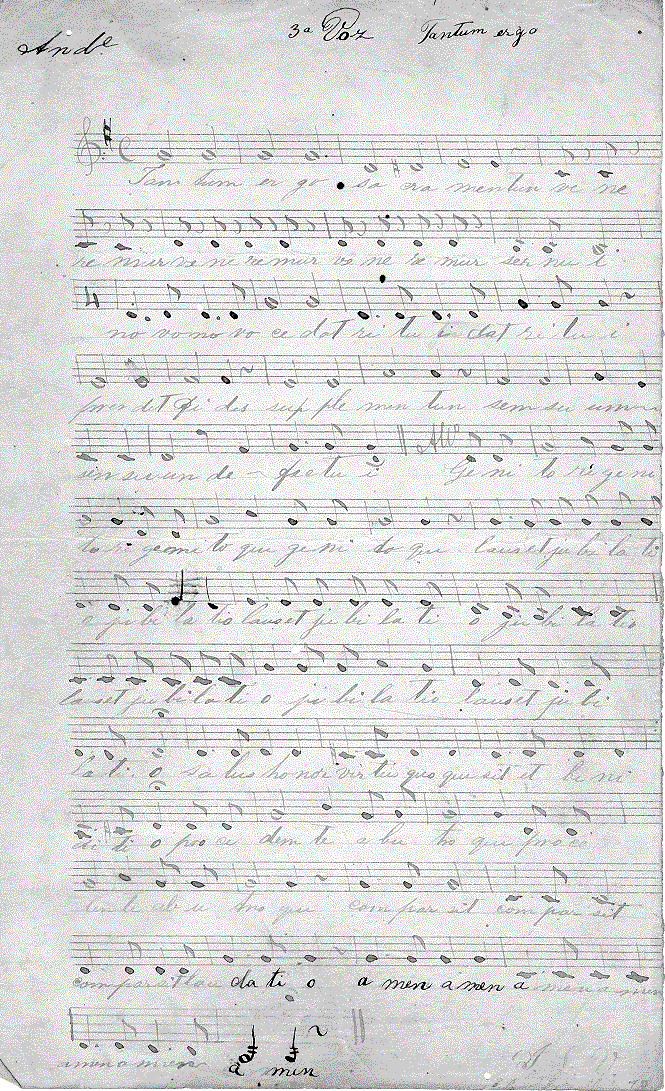 Ande 3a Voz Tantum ergo
Tan tum er go sa cra mentum ve ne
re mur ve ne re mur ve ne re mur ser nu i
no vo no vo ce dat ri tu i dat ri tu i
pren det fi des sup ple men tun sem su umm
sen su un de fectu i All° Ge ni to ri ge ni
to ri geni to que ge ni to que lauset ju bi la ti
o ju bi la tio lauset ju bi la ti o ju bi la tio
lauset ju bi la ti o ju bi la tio lauset ju bi
la ti o sa lus honor vir tus quo que sit et be ni
di ti o pro ce den ti a bu tro que pro ce
com par sit com par sit
comparsit lau da ti o a men a men a men a men
amen a men a men